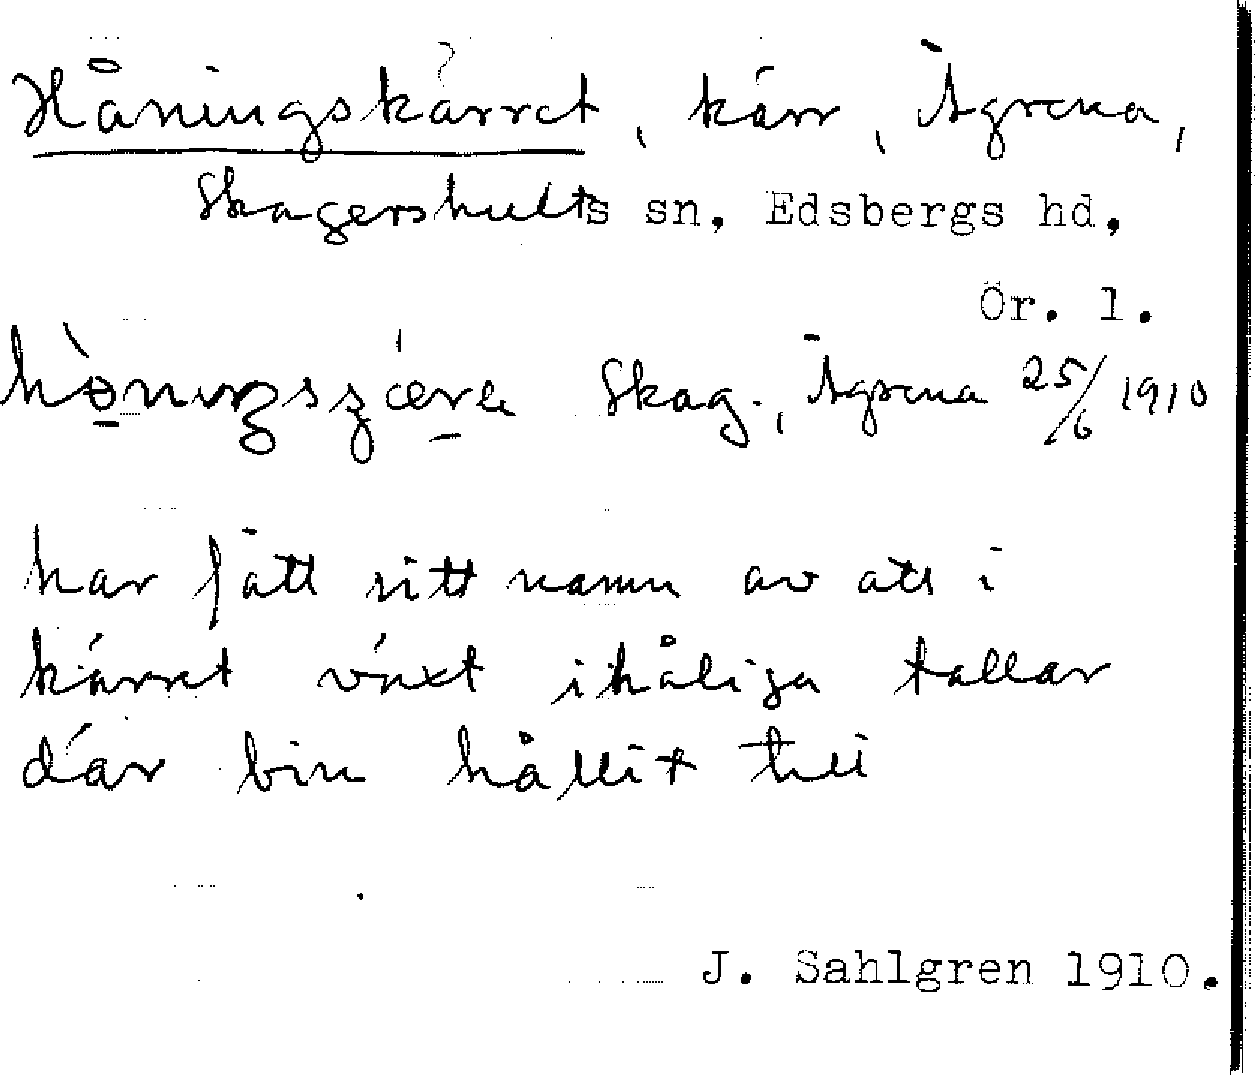 Håningskärret, kärr, Ågrena,
Skagershults sn. Edsbergs hd.
Ör. l.
Skag., Ågrena 25/6 1910
har fått sitt namn av att i
kärret växt ihåliga tallar
där bin hållit till
J. Sahlgren 1910.